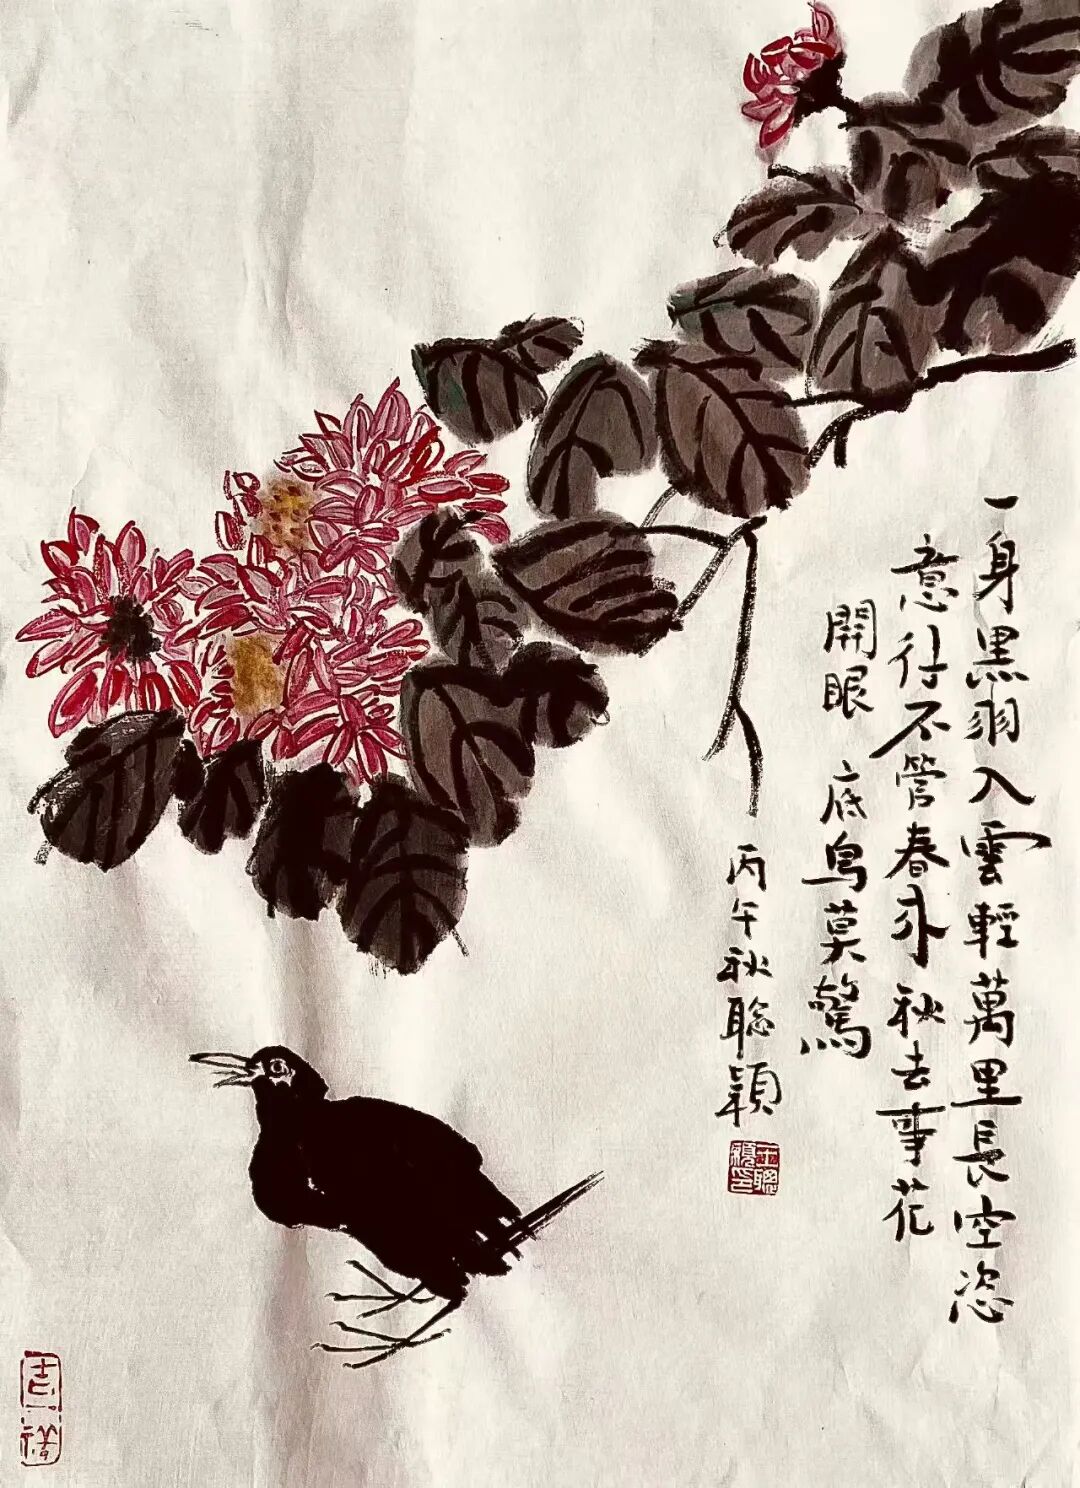 一身黑羽入雲輕萬里長空恣
意行不管春來秋去事花
開眼底鳥莫驚
丙午秋聪穎
王聰穎印
吉祥